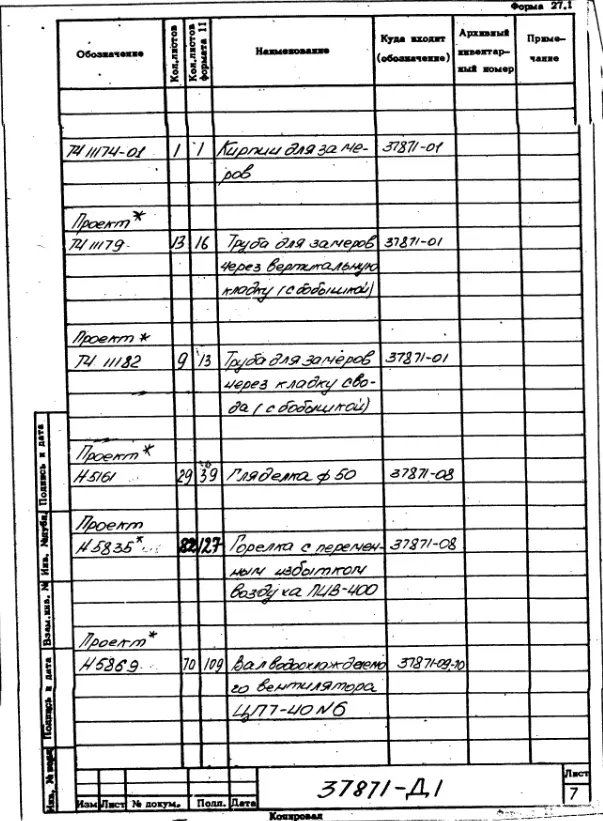 Форма 27.1
Обозначение Кол.листов Кол.листов формата 11 Наименование Куда входит (обозначение) Архивный инвентарный номер Примечание
ТЧ 11174-01 1 1 Кирпич для заме- 37871-01
ров
Проект*
ТЧ 11179 13 16 Труба для замеров 37871-01
через вертикальную
кладку (с бобышкой)
Проект*
ТЧ 11182 9 13 Труба для замеров 37871-01
через кладку сво-
да (с бобышкой)
Проект*
Н5161 29 39 Гляделка ф 50 37871-08
Проект
Н5835* 82 127 Горелка с перемен- 37871-08
ным избытком
воздуха ПИВ-400
Проект*
Н5869 70 109 Вал водоохлаждаемо 37871-09-10
го вентилятора
ЦП7-40 №6
Подпись и дата
Инв. №дубл.
Взам.инв. №
Подпись и дата
Инв. №подл
Изм Лист № докум. Подп. Дата
37871-Д1
Лист
7
Копировал